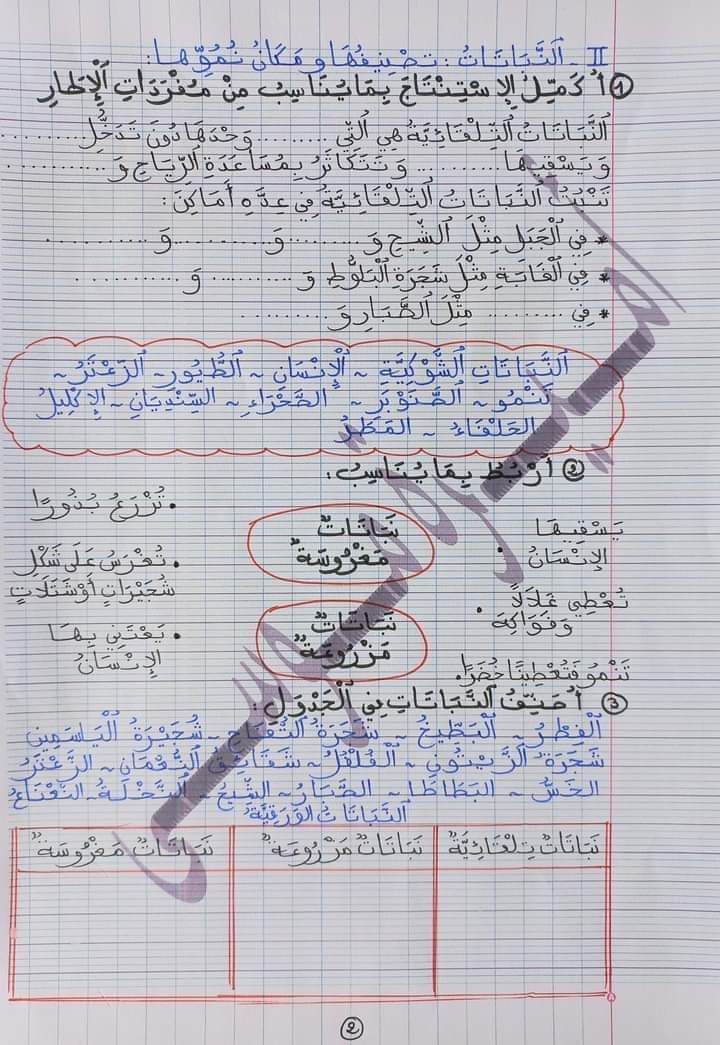 II - النَّبَاتَاتُ: تَصْنِيفُهَا وَ مَكَانُ نُمُوِّهَا:
① أُكَمِّلُ الِاسْتِنْتَاجَ بِمَا يُنَاسِبُ مِنْ مُفْرَدَاتِ الْإِطَارِ
النَّبَاتَاتُ التِّلْقَائِيَّةُ هِيَ الَّتِي ......... وَحْدَهَا دُونَ تَدَخُّلِ .........
وَ يَسْقِيهَا ......... وَ تَتَكَاثَرُ بِمُسَاعَدَةِ الرِّيَاحِ وَ .........
تَنْبُتُ النَّبَاتَاتُ التِّلْقَائِيَّةُ فِي عِدَّةِ أَمَاكِنَ:
* فِي الْجَبَلِ مِثْلَ الشِّيحِ وَ ......... وَ ......... وَ .........
* فِي الْغَابَةِ مِثْلَ شَجَرَةِ الْبَلُّوطِ وَ ......... وَ .........
* فِي ......... مِثْلَ الصَّبَّارِ وَ .........
النَّبَاتَاتِ الشَّوْكِيَّةِ - الْإِنْسَانِ - الطُّيُورِ - الزَّعْتَرُ -
تَنْمُو - الصَّنَوْبَرِ - الصَّحْرَاءِ - السِّنْدِيَانِ - الإِكْلِيلُ
الحَلْفَاءُ - المَطَرُ
② أَرْبُطُ بِمَا يُنَاسِبُ:
يَسْقِيهَا
الإِنْسَانُ •
تُعْطِي غِلَالًا •
وَفَوَاكِهَ
تَنْمُو فَتُعْطِينَا خُضَرًا •
نَبَاتَاتٌ
مَغْرُوسَةٌ
نَبَاتَاتٌ
مَزْرُوعَةٌ
• تُزْرَعُ بُذُورًا
• تُغْرَسُ عَلَى شَكْلِ
شُجَيْرَاتٍ أَوْ شَتَلَاتٍ
• يَعْتَنِي بِهَا
الإِنْسَانُ
③ أُصَنِّفُ النَّبَاتَاتِ فِي الْجَدْوَلِ:
الْفِطْرُ - الْبَطِّيخُ - شَجَرَةُ التُّفَّاحِ - شُجَيْرَةُ الْيَاسَمِينِ
شَجَرَةُ الزَّيْتُونِ - الْفُلْفُلُ - شَقَائِقُ النُّعْمَانِ - الزَّعْتَرُ
الخَسُّ - البَطَاطَا - الصَّبَّارُ - الشِّيحُ - النَّخْلَةُ - النَّعْنَاعُ
النَّبَاتَاتُ الوَرَقِيَّةُ
نَبَاتَاتٌ تِلْقَائِيَّةٌ
نَبَاتَاتٌ مَزْرُوعَةٌ
نَبَاتَاتٌ مَغْرُوسَةٌ
②